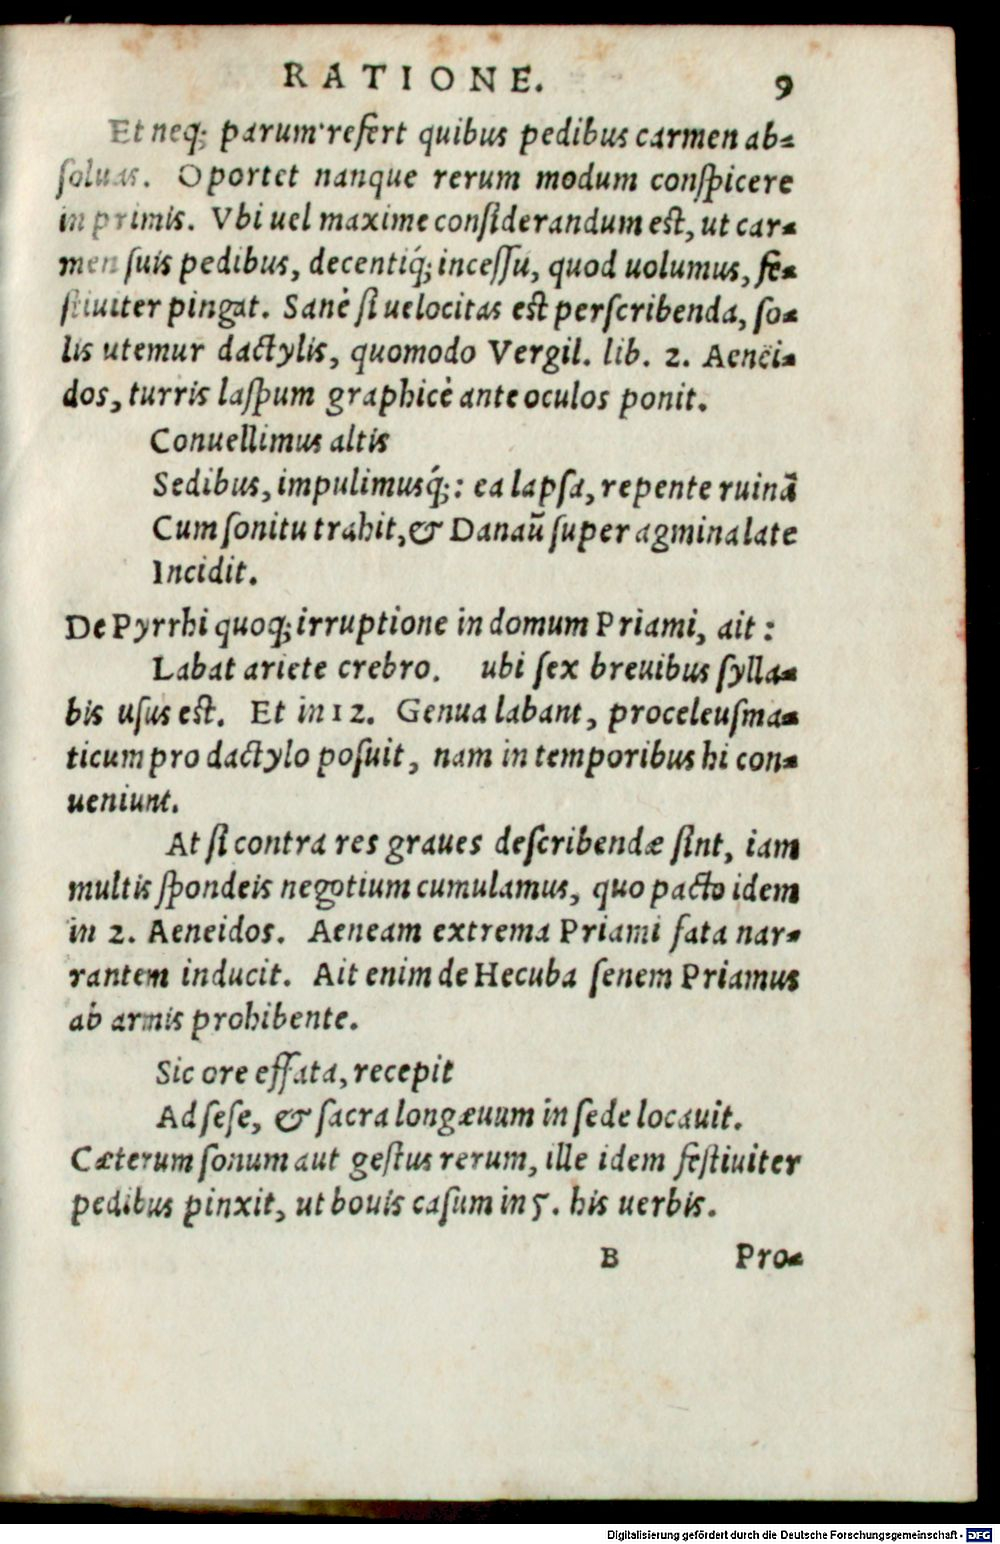 RATIONE. 9
Et neq; parum refert quibus pedibus carmen ab-
ſoluas. Oportet nanque rerum modum conſpicere
in primis. Vbi uel maxime conſiderandum est, ut car-
men ſuis pedibus, decentiq́; inceſſu, quod uolumus, fe-
ſtiuiter pingat. Sanè ſi uelocitas est perſcribenda, ſo-
lis utemur dactylis, quomodo Vergil. lib. 2. Aenëi-
dos, turris laſpum graphicè ante oculos ponit.
Conuellimus altis
Sedibus, impulimusq́;: ea lapſa, repente ruinā
Cum ſonitu trahit, & Danaū ſuper agmina late
Incidit.
De Pyrrhi quoq; irruptione in domum Priami, ait:
Labat ariete crebro. ubi ſex breuibus ſylla-
bis uſus est. Et in 12. Genua labant, proceleuſma-
ticum pro dactylo poſuit, nam in temporibus hi con-
ueniunt.
At ſi contra res graues deſcribendæ ſint, iam
multis ſpondeis negotium cumulamus, quo pacto idem
in 2. Aeneidos. Aeneam extrema Priami fata nar-
rantem inducit. Ait enim de Hecuba ſenem Priamus
ab armis prohibente.
Sic ore effata, recepit
Ad ſeſe, & ſacra longæuum in ſede locauit.
Cæterum ſonum aut geſtus rerum, ille idem feſtiuiter
pedibus pinxit, ut bouis caſum in 5. his uerbis.
B Pro-
Digitalisierung gefördert durch die Deutsche Forschungsgemeinschaft - DFG